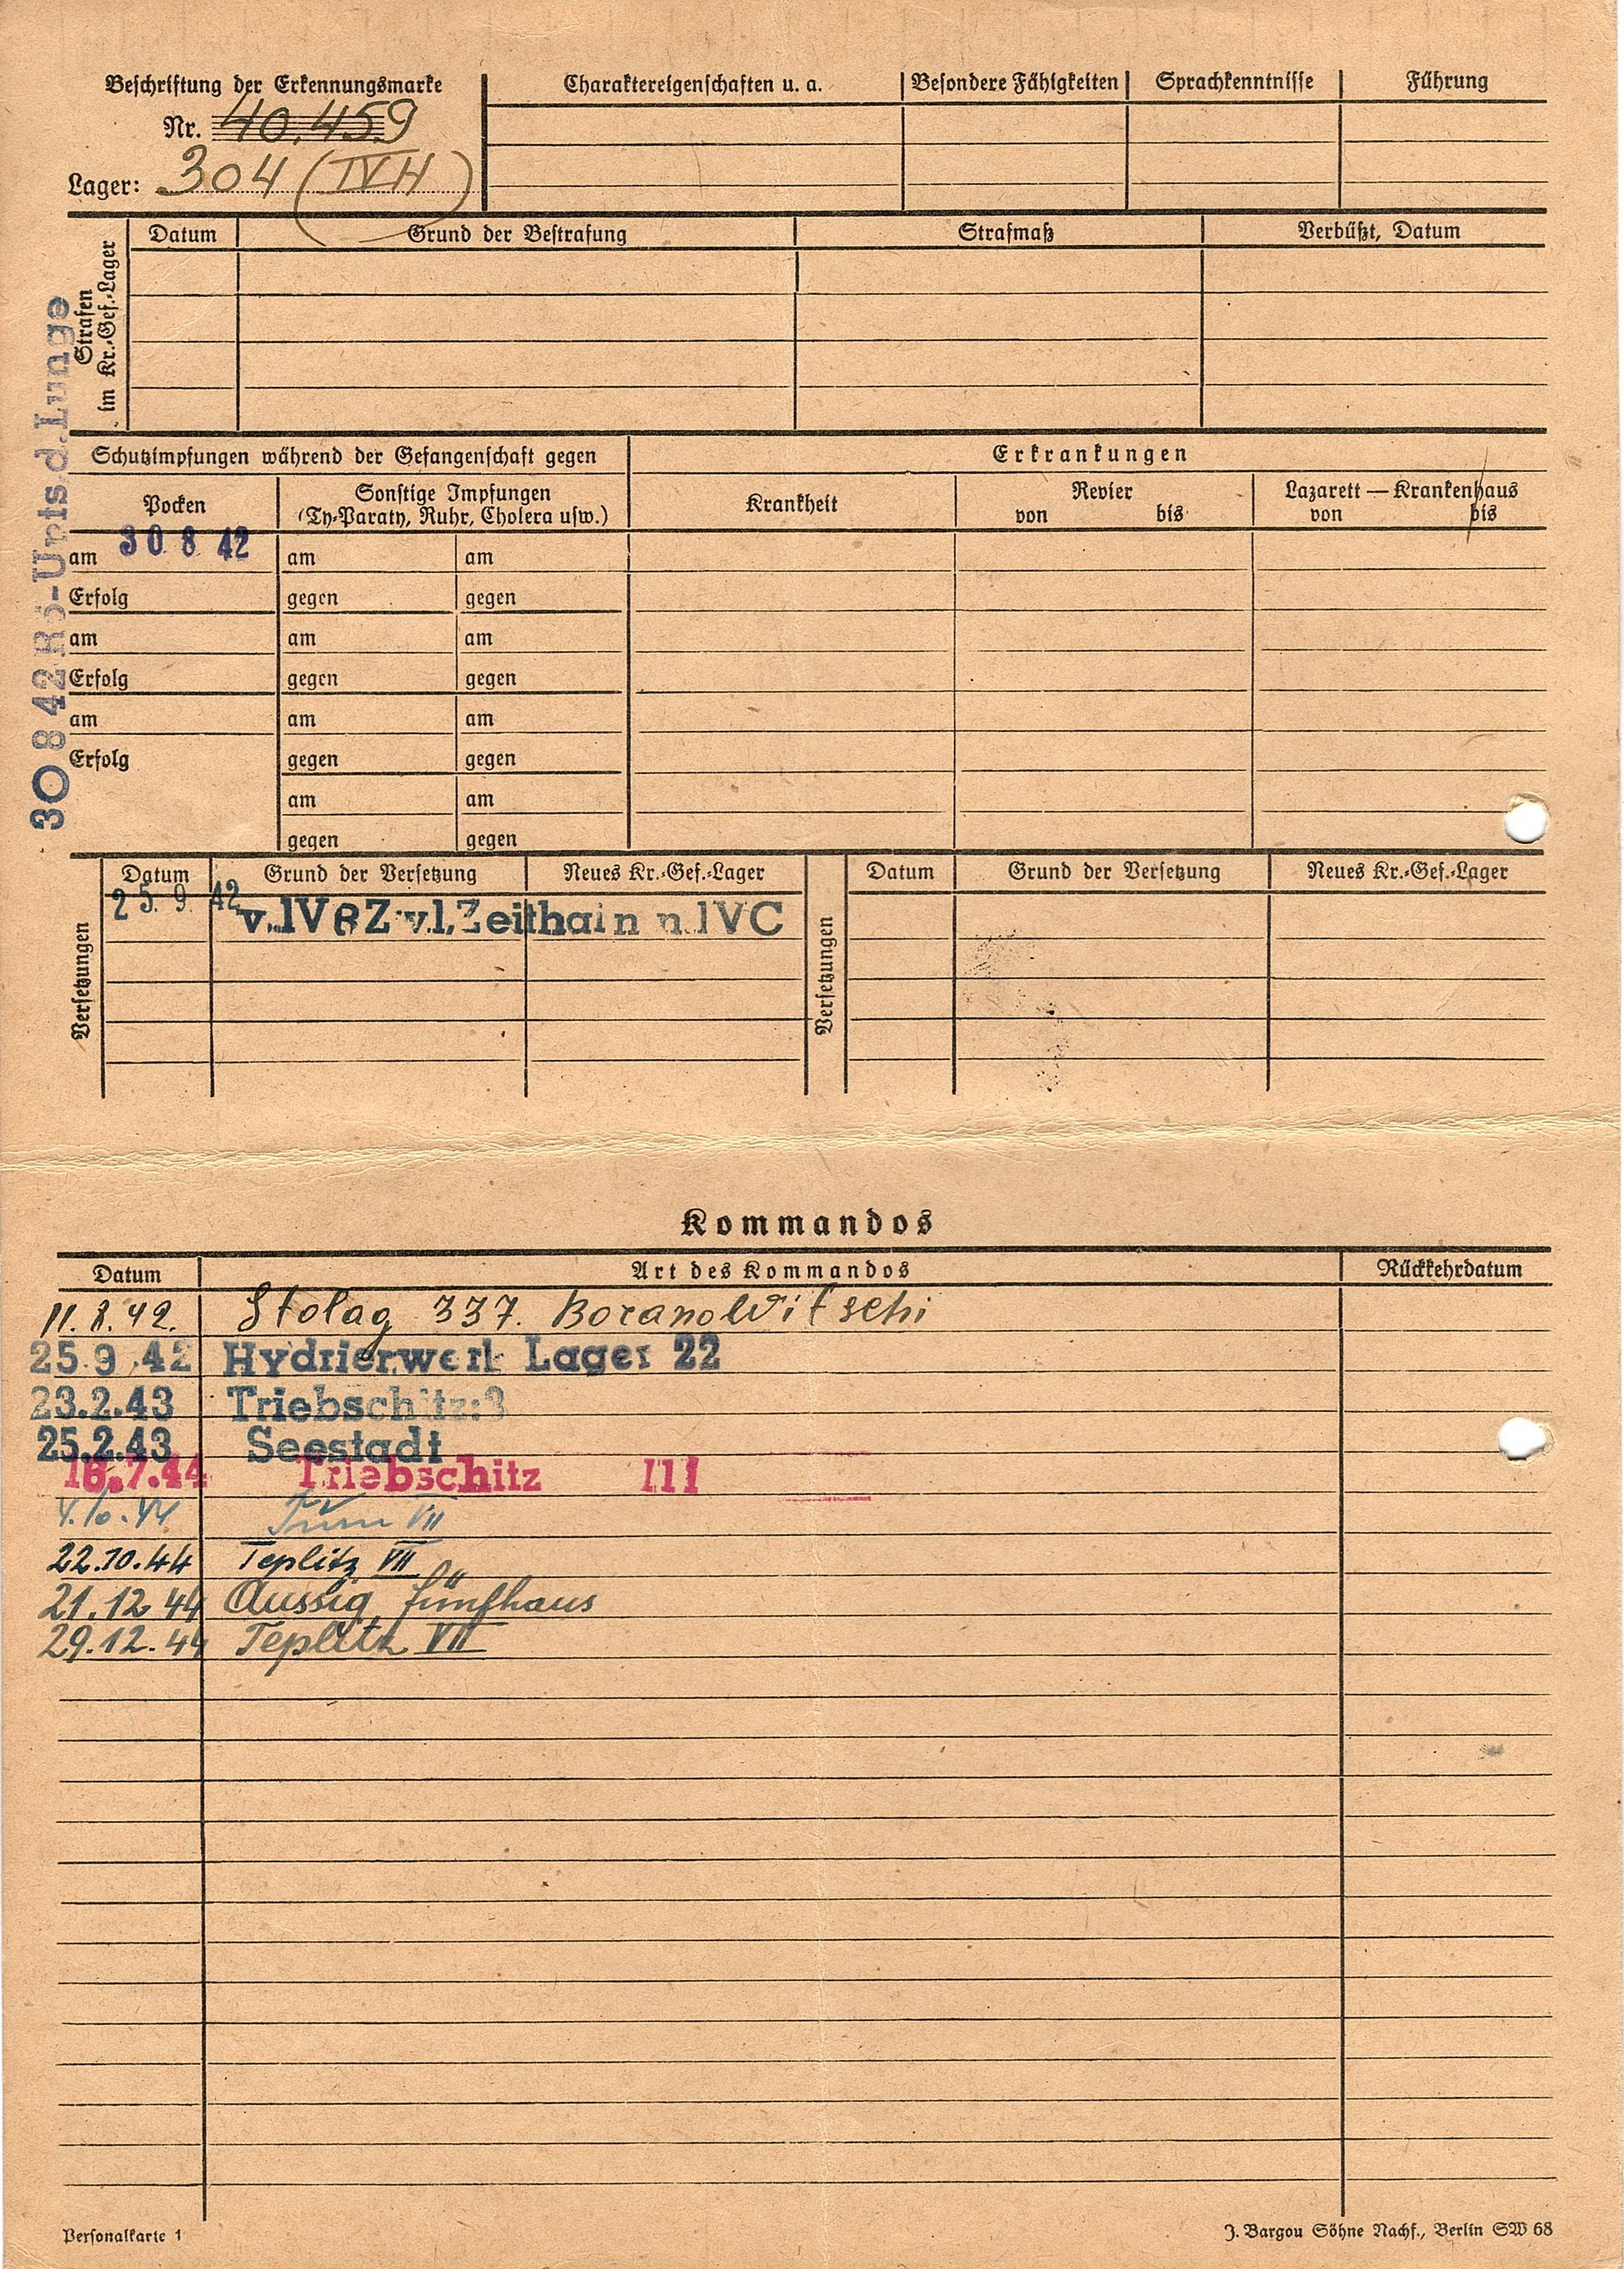 Beschriftung der Erkennungsmarke
Nr. 40.459
Lager: 304 (IV H)
Charaktereigenschaften u. a. Besondere Fähigkeiten Sprachkenntnisse Führung
Strafen
im Kr.-Gef.-Lager
Datum Grund der Bestrafung Strafmaß Verbüßt, Datum
30 8 42 Rö-Unts d. Lunge
Schutzimpfungen während der Gefangenschaft gegen
Erkrankungen
Pocken
Sonstige Impfungen
(Ty-Paraty, Ruhr, Cholera usw.)
Krankheit
Revier
von bis
Lazarett — Krankenhaus
von bis
am 30 8 42 am am
Erfolg gegen gegen
am am am
Erfolg gegen gegen
am am am
Erfolg gegen gegen
am am
gegen gegen
Versetzungen
Datum Grund der Versetzung Neues Kr.-Gef.-Lager
25. 9. 42 v. IV B Z v. l. Zeithain n. IV C
Versetzungen
Datum Grund der Versetzung Neues Kr.-Gef.-Lager
Kommandos
Datum Art des Kommandos Rückkehrdatum
11. 8. 42. Stolag 337. Boranowitschi
25 9 .42 Hydrierwerk Lager 22
23.2.43 Triebschitz:3
25.2.43 Seestadt
18.7.44 Triebschitz III
4.10.44 VII
22.10.44 Teplitz VII
21.12 44 Aussig, Fünfhaus
29.12.44 Teplitz VII
Personalkarte 1
J. Bargou Söhne Nachf., Berlin SW 68